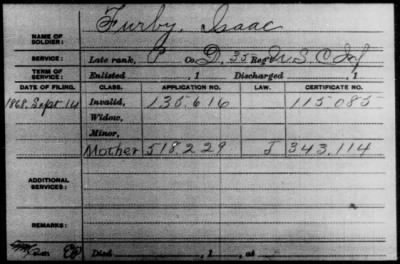 NAME OF SOLDIER: Furby, Isaac
SERVICE: Late rank, P Co. D, 35 Reg't U.S.C. Inf
TERM OF SERVICE: Enlisted , 1 Discharged , 1
DATE OF FILING. CLASS. APPLICATION NO. LAW. CERTIFICATE NO.
1868, Sept 14 Invalid, 135.616 115.085
Widow,
Minor,
Mother 518.229 J 343.114
ADDITIONAL SERVICES:
REMARKS:
Died , 1 , at